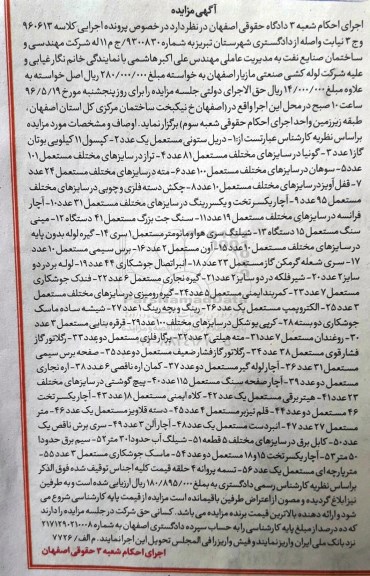 آگهی مزایده
اجرای احکام شعبه ۳ دادگاه حقوقی اصفهان در نظر دارد در خصوص پرونده اجرایی کلاسه ۹۶۰۶۱۳
و ج ۳ نیابت واصله از دادگستری شهرستان تبریز به شماره ۹۳۰۰۸۳۰/ج م ۱۱ له شرکت مهندسی و
ساختمان صنایع نفت به مدیریت عاملی مهندس علی اکبر هاشمی با نمایندگی خانم نگار غیابی و
علیه شرکت لوله کشی صنعتی مازیار اصفهان به خواسته مبلغ ۲۸۰/۰۰۰/۰۰۰ ریال اصل خواسته به
علاوه مبلغ ۱۴/۰۰۰/۰۰۰ ریال حق الاجرای دولتی جلسه مزایده را برای روز پنجشنبه مورخ ۹۶/۵/۱۹
ساعت ۱۰ صبح در محل این اجرا واقع در (اصفهان خ نیکبخت ساختمان مرکزی کل استان اصفهان،
طبقه زیرزمین واحد اجرای احکام حقوقی شعبه سوم) برگزار نماید. اوصاف و مشخصات مورد مزایده
براساس نظریه کارشناس عبارتست از: ۱- دریل ستونی مستعمل یک عدد ۲- کپسول ۱۱ کیلویی بوتان
گاز ۱ عدد ۳- گونیا در سایزهای مختلف مستعمل ۸۱ عدد ۴- تراز در سایزهای مختلف مستعمل ۱۰۱
عدد ۵- سوهان در سایزهای مختلف مستعمل ۱۰۰ عدد ۶- مته در سایزهای مختلف مستعمل ۲۴ عدد
۷- قفل آویز در سایزهای مختلف مستعمل ۱۰ عدد ۸- چکش دسته فلزی و چوبی در سایزهای مختلف
مستعمل ۹۵ عدد ۹- آچار یکسر تخت و یکسر رینگ در سایزهای مختلف مستعمل ۳۱ عدد ۱۰- آچار
فرانسه در سایزهای مختلف مستعمل ۱۹ عدد ۱۱- سنگ جت بزرگ مستعمل ۴۱ دستگاه ۱۲- مینی
سنگ مستعمل ۱۵ دستگاه ۱۳- شیلنگ سری هوا و مانومتر مستعمل ۱ سری ۱۴- گیره لوله بدون پایه
در سایزهای مختلف مستعمل ۱۰ عدد ۱۵- آون مستعمل ۲ عدد ۱۶- برس سیمی مستعمل ۱۰ عدد
۱۷- سری شعله گرمکن گاز مستعمل ۲۳ عدد ۱۸- انبر اتصال جوشکاری ۴۴ عدد ۱۹- لوله بر در دو
سایز ۲ عدد ۲۰- شیر فلکه در دو سایز ۲ عدد ۲۱- گیره نجاری مستعمل ۶ عدد ۲۲- فندک جوشکاری
مستعمل ۷ عدد ۲۳- کمربند ایمنی مستعمل ۵ عدد ۲۴- گیره رومیزی در سایزهای مختلف مستعمل
۳ عدد ۲۵- الکتروپمپ مستعمل یک عدد ۲۶- رینگ و بچه رینگ ۱ عدد ۲۷- شیشه ساده ماسک
جوشکاری دو بسته ۲۸- کربی یو شکل در سایزهای مختلف ۱۰۰ عدد ۲۹- قرقره بنایی مستعمل ۳ عدد
۳۰- روغندان مستعمل ۷ عدد ۳۱- مته هیلتی ۳ عدد ۳۲- پرگار فلزی مستعمل دو عدد ۳۳- رگلاتور گاز
فشار قوی مستعمل ۳۸ عدد ۳۴- رگلاتور گاز فشار ضعیف مستعمل دو عدد ۳۵- صفحه برس سیمی
مستعمل ۳۱ عدد ۳۶- آچار لوله گیر مستعمل دو عدد ۳۷- کمان اره ناقص ۶ عدد ۳۸- اره نجاری
مستعمل دو عدد ۳۹- آچار صفحه سنگ مستعمل ۱۱۵ عدد ۴۰- پیچ گوشتی در سایزهای مختلف
۲۳ عدد ۴۱- هیتر برقی مستعمل یک عدد ۴۲- کلاه ایمنی مستعمل ۱۸ عدد ۴۳- آچار یکسر تخت
۴۶ مستعمل دو عدد ۴۴- قلم تیزبر مستعمل ۴ عدد ۴۵- دسته قلاویز مستعمل یک عدد ۴۶- متر
مستعمل ۲۷ عدد ۴۷- انبردست مستعمل یک عدد ۴۸- آچار آلن ۳ عدد ۴۹- سری برش ناقص یک
عدد ۵۰- کابل برق در سایزهای مختلف ۵ قطعه ۵۱- شیلنگ آب حدودا ۳۰ متر ۵۲- سیم برق حدودا
۵۰ متر ۵۳- آچار یکسر تخت ۱۵ و ۱۸ مستعمل دو عدد ۵۴- ماسک جوشکاری مستعمل ۳ عدد ۵۵-
متر پارچه ای مستعمل یک عدد ۵۶- تسمه پروانه ۴ حلقه قیمت کلیه اجناس توقیف شده فوق الذکر
براساس نظریه کارشناس رسمی دادگستری به مبلغ ۱۸۰/۸۹۵/۰۰۰ ریال ارزیابی شده است و به طرفین
نیز ابلاغ گردیده و مصون از اعتراض طرفین باقیمانده است مزایده از قیمت پایه کارشناسی شروع می
شود و ارائه دهنده بالاترین قیمت برنده مزایده می باشد. کسانی حق شرکت در جلسه مزایده را دارند
که ده درصد از مبلغ پایه کارشناسی را به حساب سپرده دادگستری اصفهان به شماره ۲۱۷۱۲۹۰۲۱۰۰۰۸
نزد بانک ملی ایران واریز نمایند و فیش واریزی را فی المجلس تحویل این اجرا نمایند. م الف/ ۷۷۲۶
اجرای احکام شعبه ۳ حقوقی اصفهان